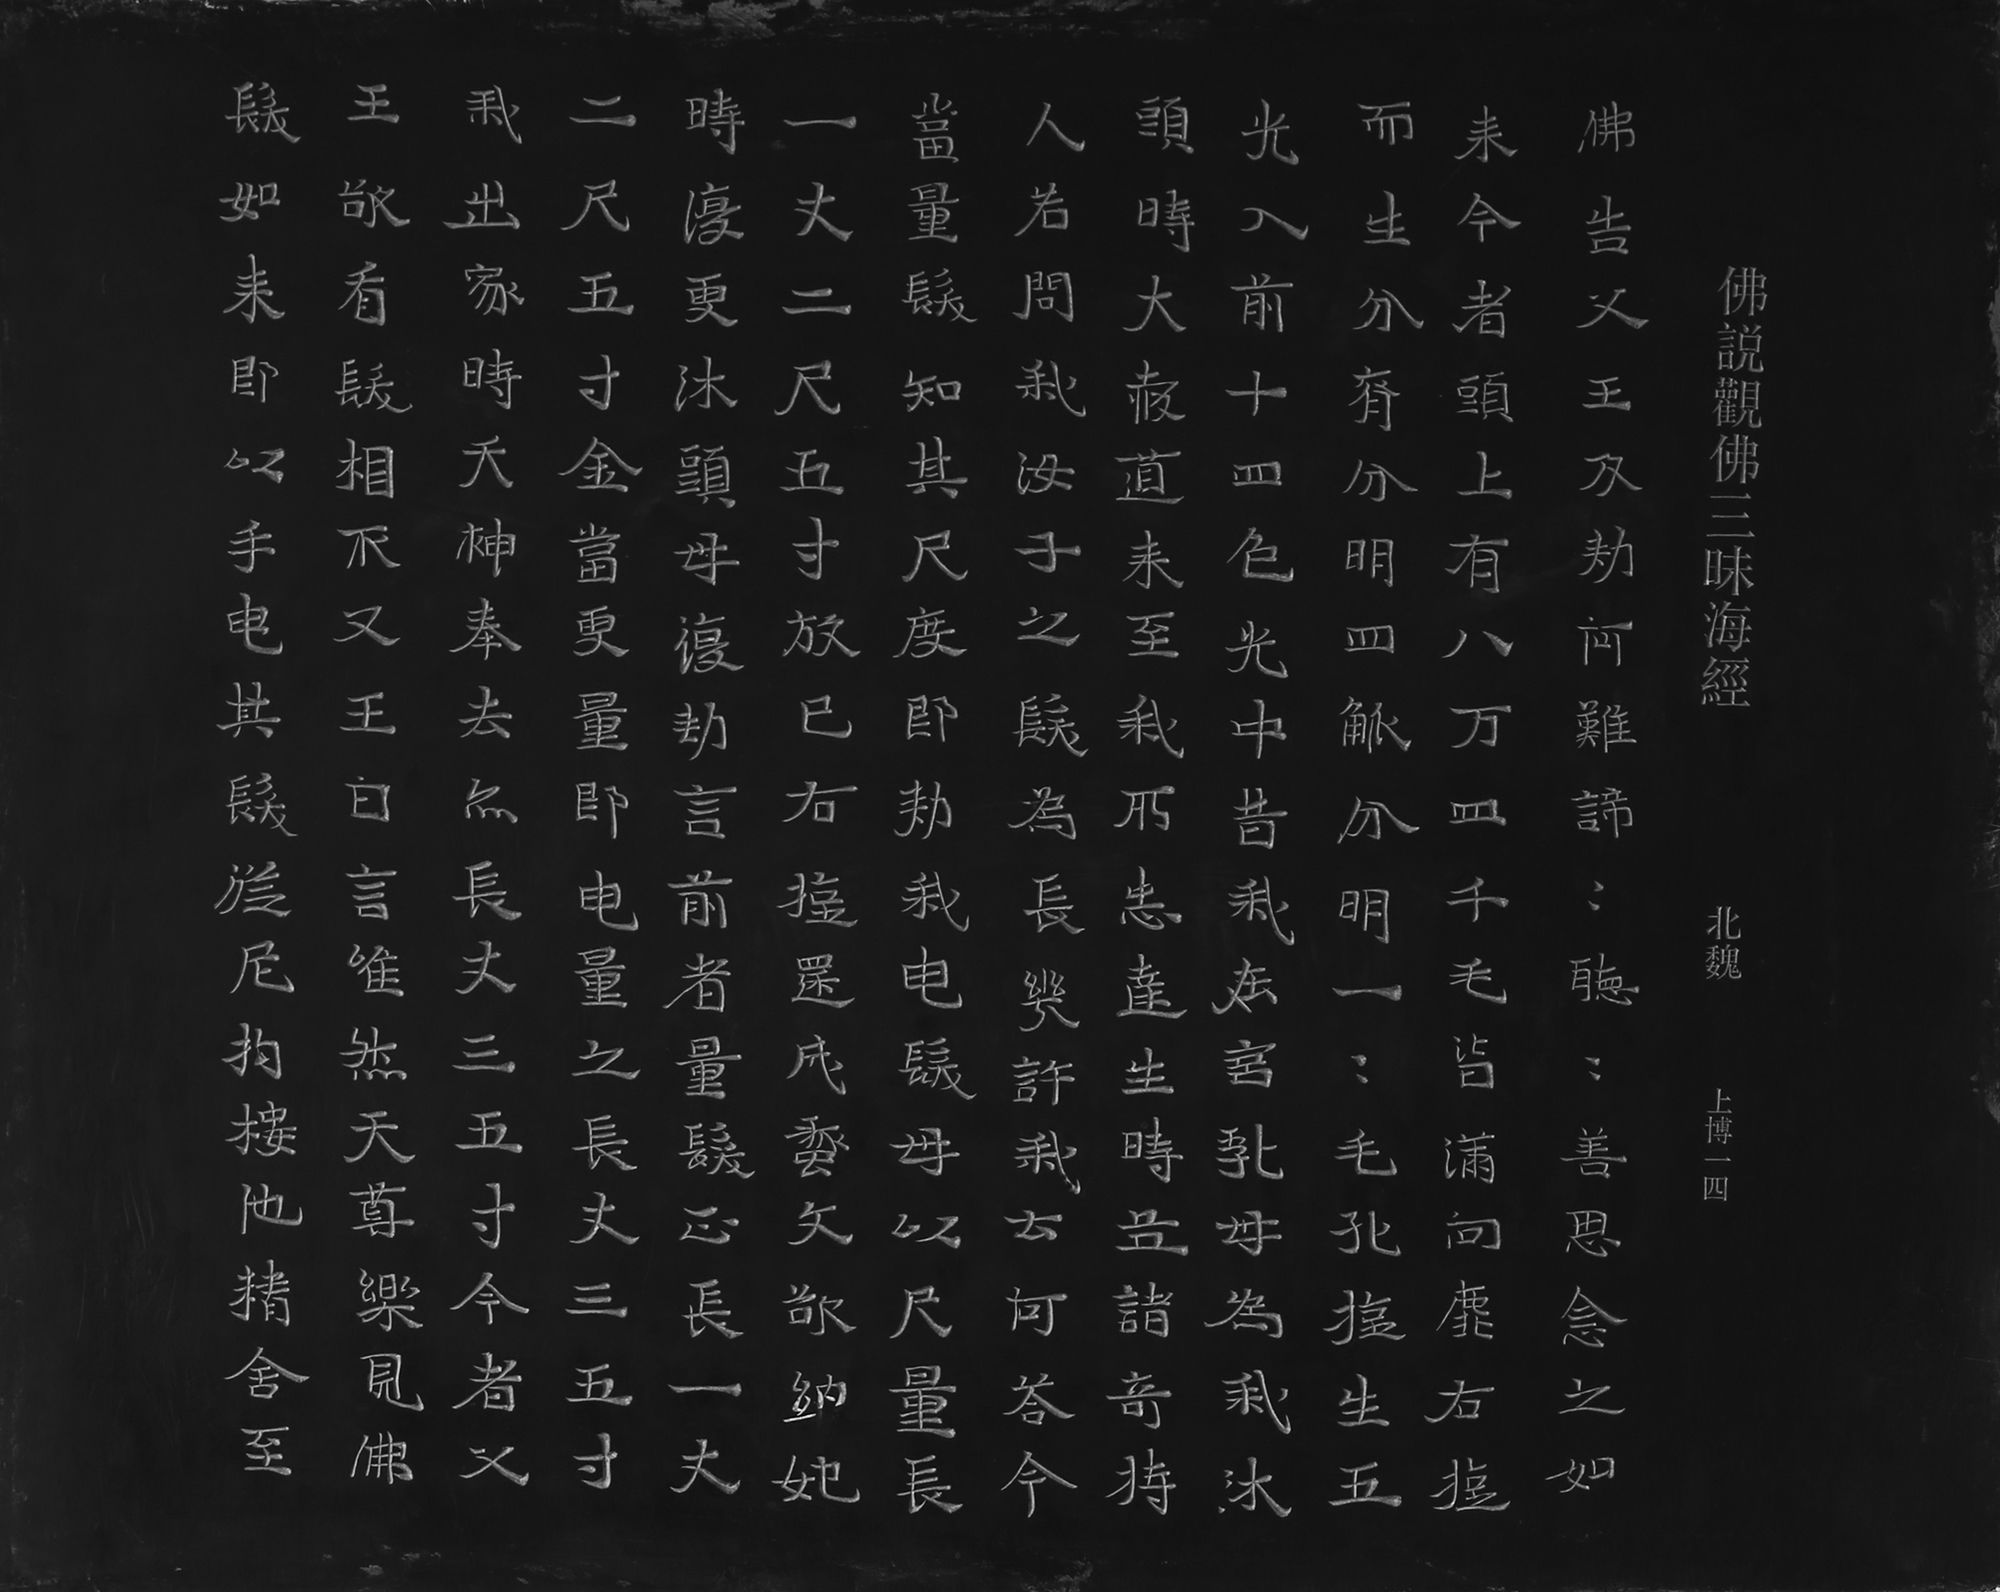 佛說觀佛三昧海經 北魏 上博一四
佛告父王及勑阿難諦〻聽〻善思念之如
来今者頭上有八万四千毛皆㒼向靡右旋
而生分齊分明四觚分明一〻毛孔旋生五
光入前十四色光中昔我在宮乳母為我沐
頭時大愛道来至我所悉達生時並諸奇特
人若問我汝子之髮為長幾許我云何荅今
當量髮知其尺度即勑我申髮母以尺量長
一丈二尺五寸放已右旋還成蠡文欲納妃
時復更沐頭母復勑言前者量髮正長一丈
二尺五寸今當更量即申量之長丈三五寸
我出家時天神奉去亦長丈三五寸今者父
王欲看髮相不父王白言唯然天尊樂見佛
髮如来即以手申其髮從尼拘樓陁精舍至